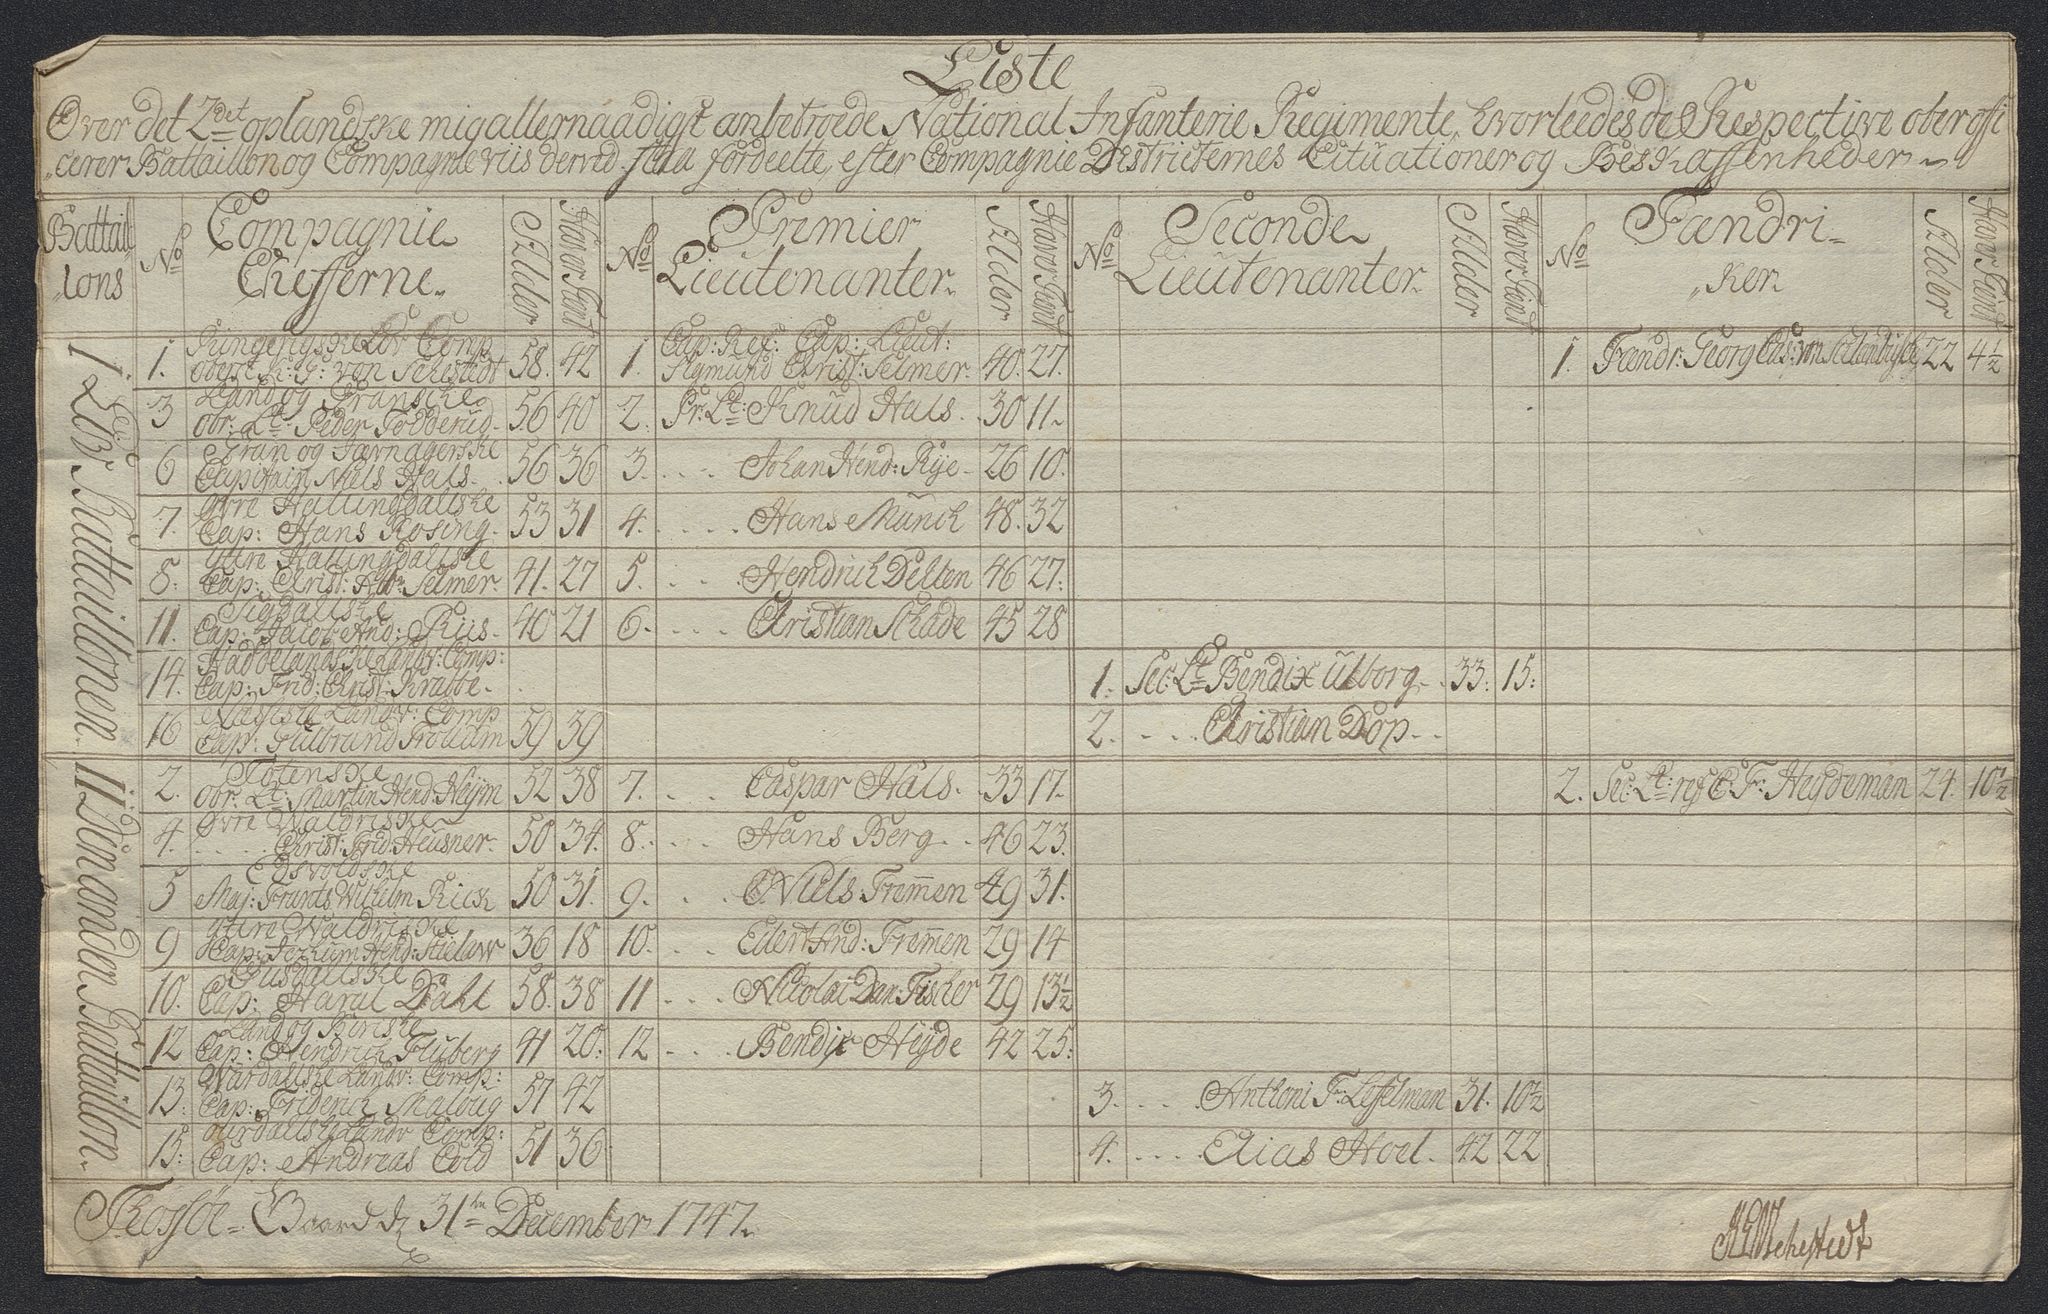 Liste
Over det 2det oplandske mig allernaadigst anbetroede National Infanterie Regimente, hvorleedes de Respective oberoffi
cerer Battaillon og Compagnieviis derved staa fordeelte, efter Compagnie Districternes Cituationer og Beskaffenheder
Battail- No Compagnie Alder Haver tient No Premier Alder Haver tient No Seconde Alder Haver tient No Fændri-
lons Chefferne Lieutenanter Lieutenanter ker Alder Haver tient
1ste Battaillonen
1. Comp 1. Cap: Ref: Cap: Lieut:
oberst von Sehestedt 58. 42 Sigmund Christ: Selmer. 40. 27. 1. Fændr: Georg Cas: von 22 4½
3 Land og
obr: Lt: Peder Todderud 56 40 2. Pr: Lt: Knud Hals. 30 11.
6 Gran og Jævnagerske
Capitain Niels Hals. 56 36 3. Johan Hend: Rye 26 10.
7. øvre Hallingdalske
Cap: Hans Rosing. 53 31 4. Hans Munch 48. 32
8. ytre Hallingdalske
Cap: Christ: Selmer. 41. 27 5. Hendrich Delten 46 27.
11. Sigdalske
Cap: Jacob And: Riis. 40 21 6. Christian Schade 45 28
14. Haddelandske Landv: Comp:
Cap: Frid: Christ: Krabbe 1. Sec: Lt: Bendix Ulborg 33. 15.
16 Landv: Comp
Cap: Gulbrand 59 39 2. Christian Dop
II Den anden Battaillon.
2. Totenske
obr: Lt: Martin Hend: Heijm 52 38 7. Caspar Hals. 33 17. 2. Sec: Lt: ref C. F: Heydeman 24. 10½
4. øvre Waldriske
Christ: Frid: Heusner. 50 34. 8. Hans Berg 46 23.
5 Edsvoldske
Maj: Frants Wilhelm Rick 50 31. 9. Niels Fremen 49 31.
9 ytre Waldriske
Cap: Jochum Hend: Stielow 36 18 10. Eilert And: Fremen 29 14
10. Gusdalske
Cap: Haral Dahl 58. 38 11 Nicolai Dan: Fischer 29 13½
12 Land og Biriske
Cap: Hendrich Fluberg 41 20. 12 Bendix Heyde 42 25.
13. Wardalske Landv: Comp:
Cap: Friderich 57 42 3. Anthoni Fr: Leselman 31. 10½
15. Landv Comp:
Cap: Andreas Cold 51 36 4. Elias Hoel. 42 22
Gaard d: 31te December 1747.
Sehestedt